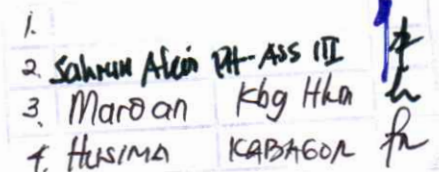 1.
2. Sahrun PH-ASS III
3. Maroan Kbg Hkm
4. HUSIMA KABAGOR